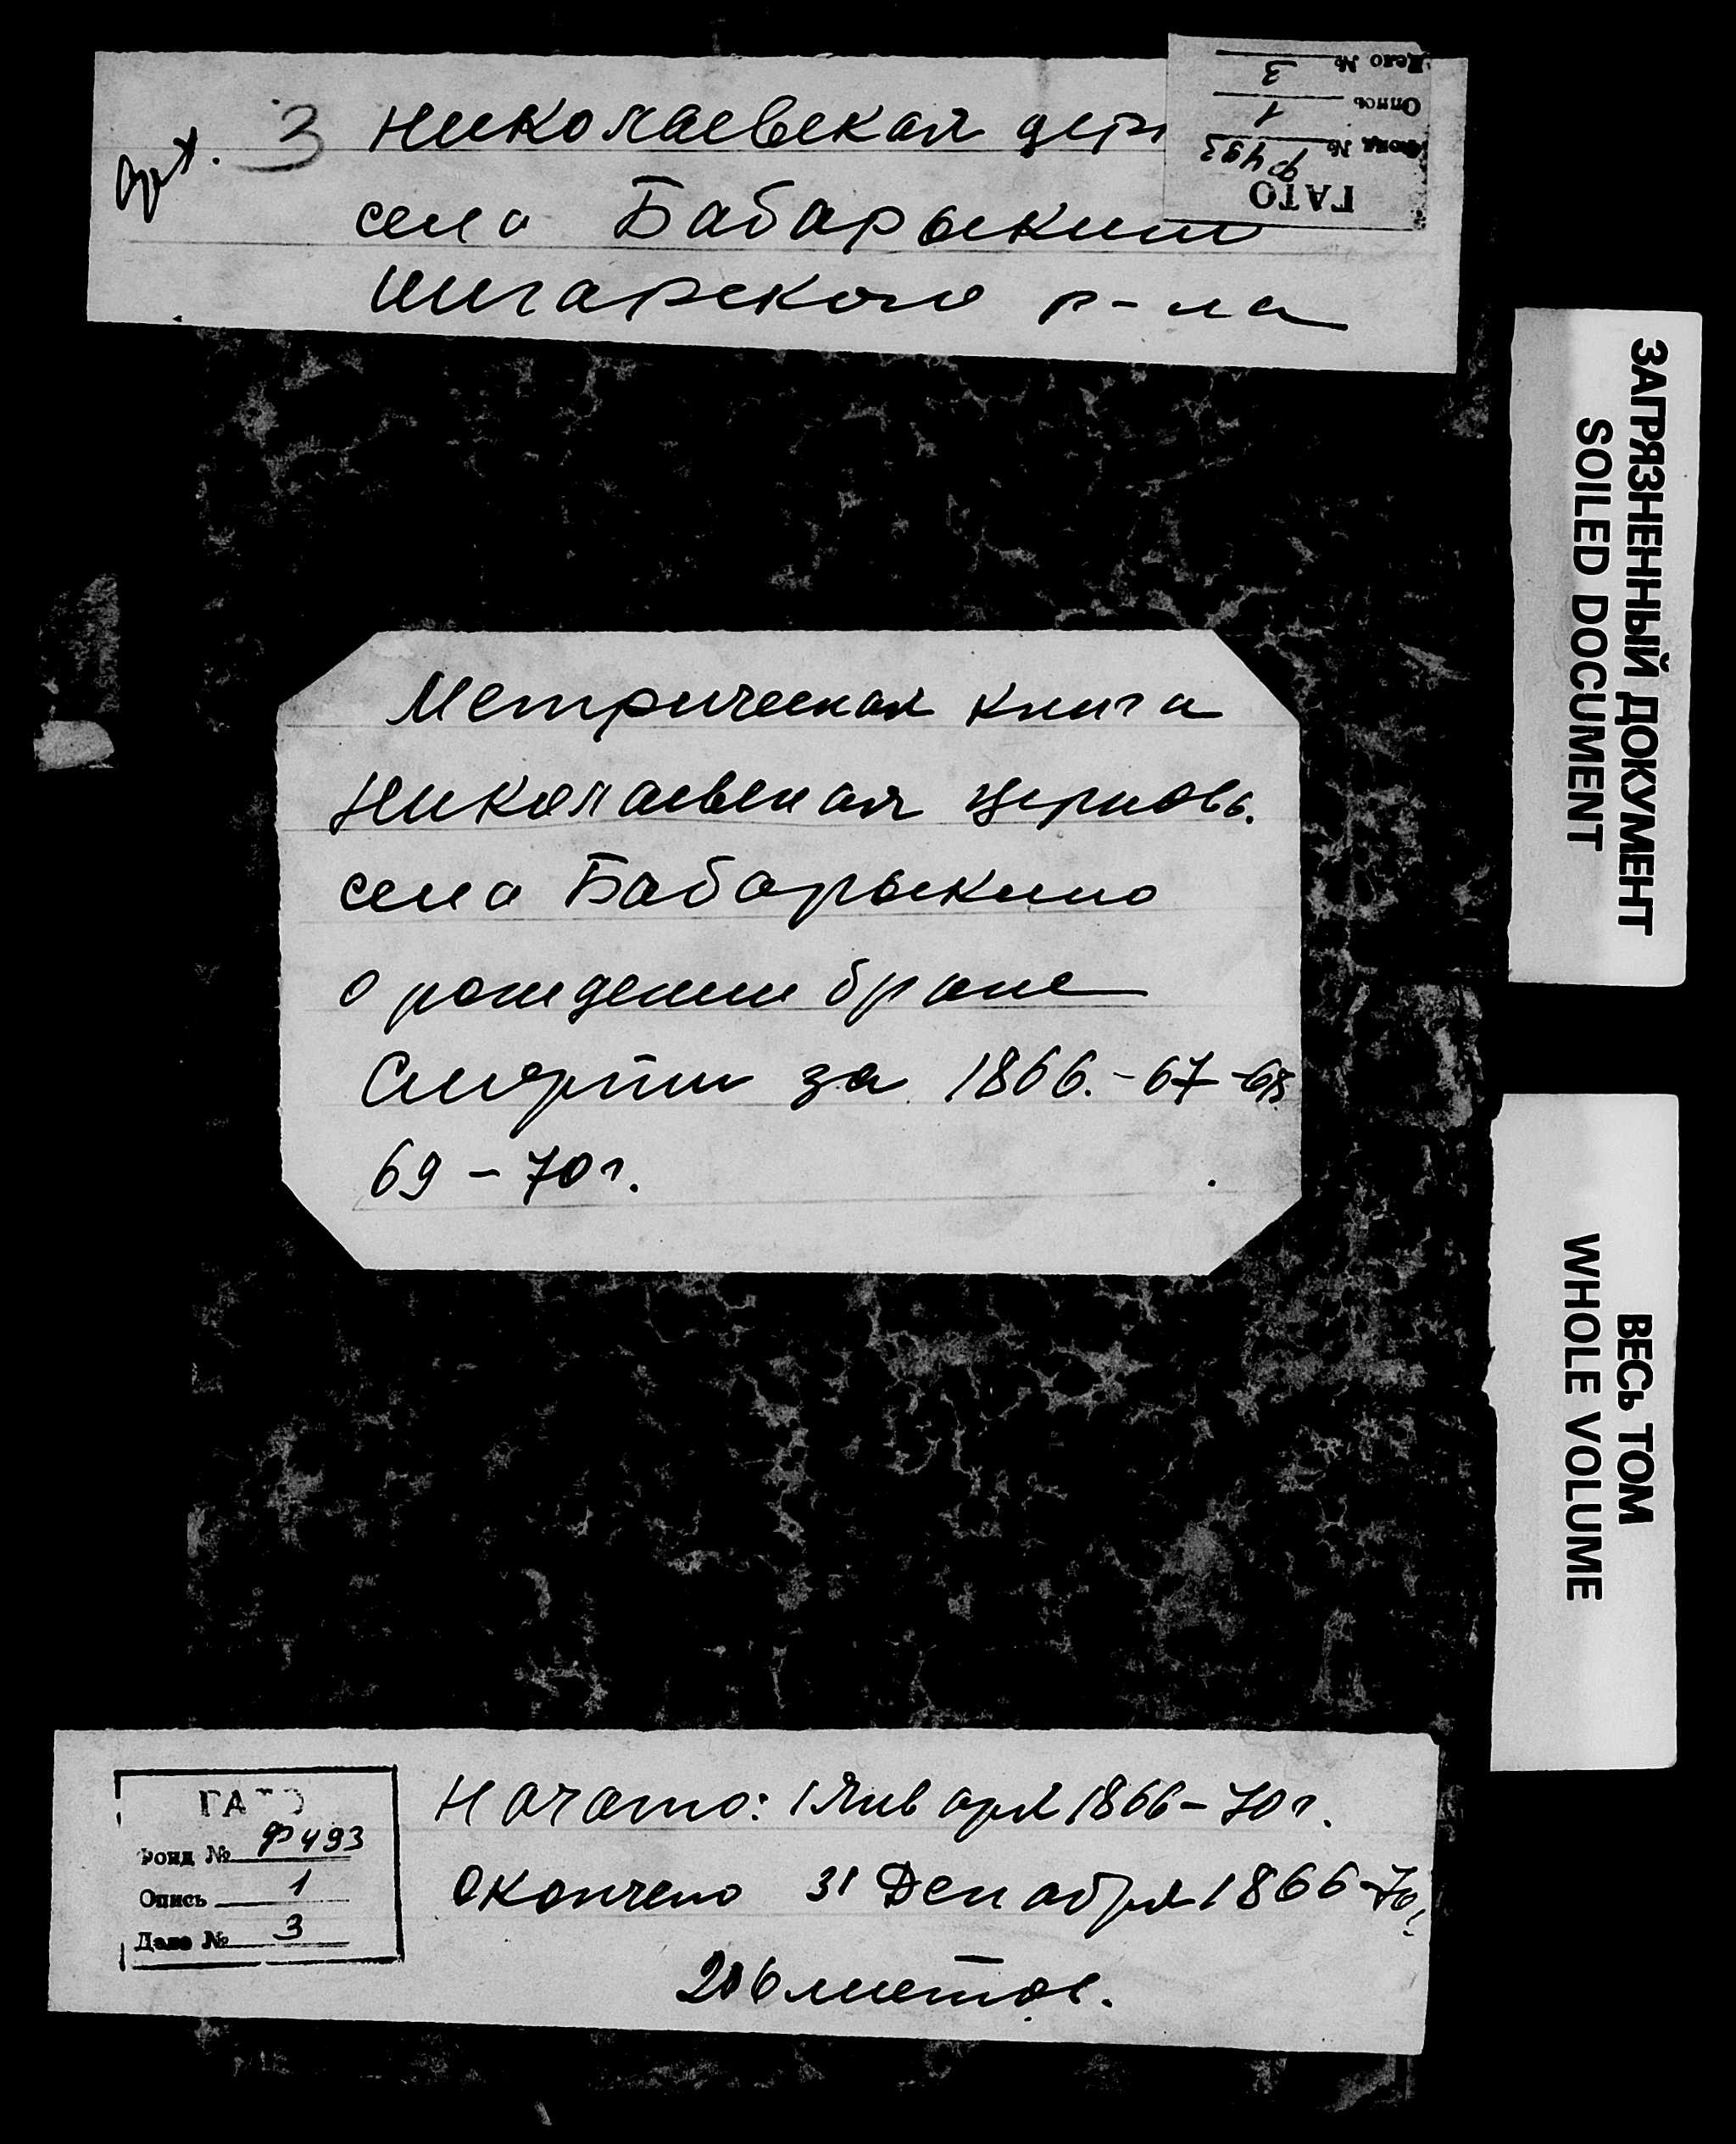 3 Николаевская церк
село Бабарыкино
Шигарского р-на
ГАТО
Фонд № Ф493
Опись 1
Дело № 3
ЗАГРЯЗНЕННЫЙ ДОКУМЕНТ
SOILED DOCUMENT
Метрическая книга
Николаевская церковь.
село Бабарыкино
о рождении браке
Смерти за 1866.-67-68
69-70г.
ВЕСЬ ТОМ
WHOLE VOLUME
ГАТО
Фонд № Ф493
Опись 1
Дело № 3
Начато: 1 Января 1866-70г.
Окончено 31 Декабря 1866-70г
206 листов.